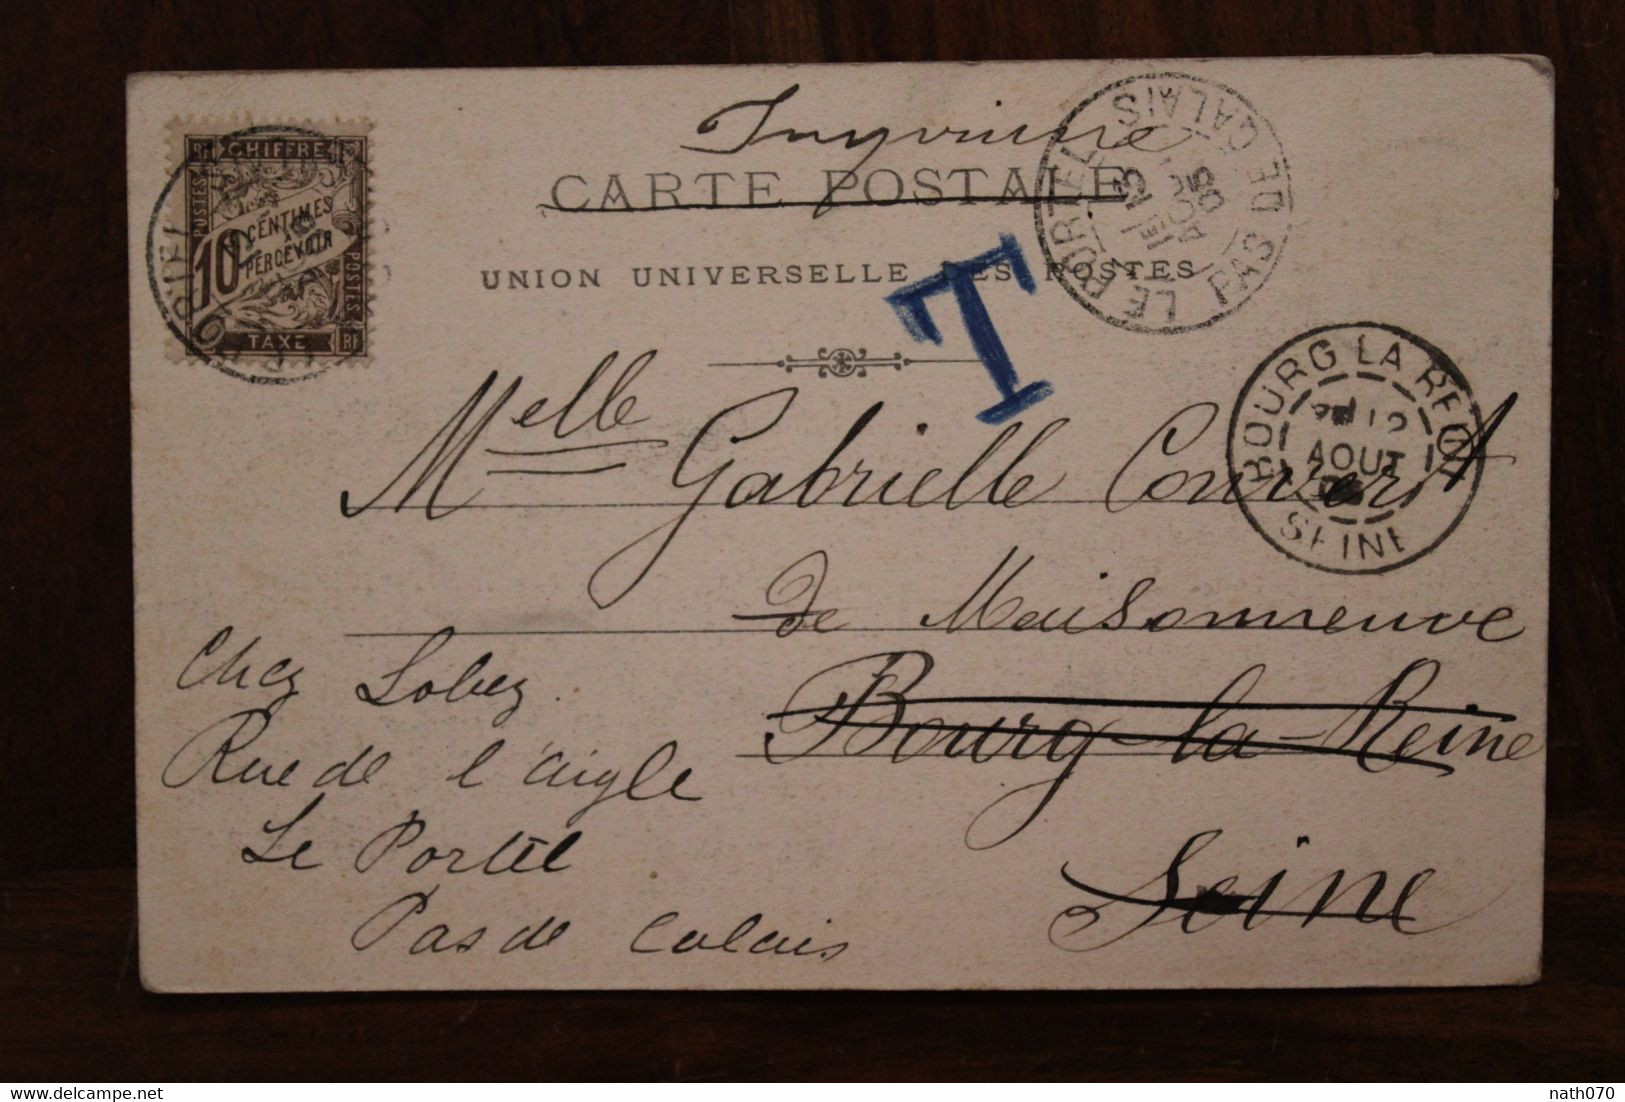 Imprimé
CARTE POSTALE
UNION UNIVERSELLE DES POSTES
RF CHIFFRE
POSTES
10 CENTIMES
À
PERCEVOIR
POSTES
TAXE RF
T
LE PORTEL PAS DE CALAIS
13
AOUT
05
BOURG LA REINE
12
AOUT
SEINE
Melle Gabrielle Convert
de Maisonneuve
Bourg-la-Reine
Seine
Chez Lobez
Rue de l'aigle
Le Portel
Pas de Calais
nath070